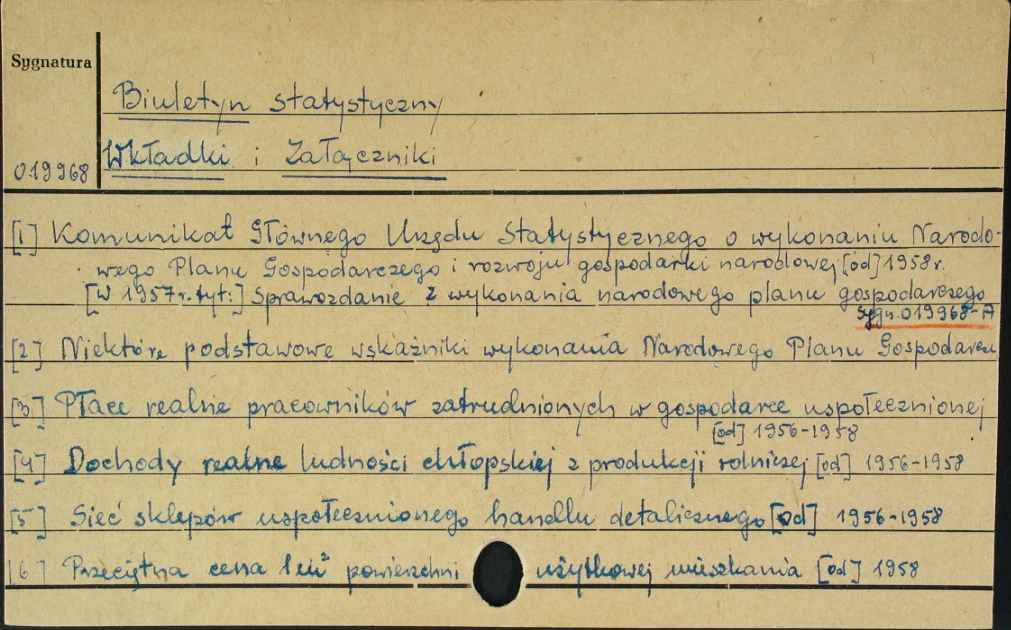 Sygnatura
Biuletyn statystyczny
Wkładki i Załączniki
019968
[1] Komunikat Głównego Urzędu Statystycznego o wykonaniu Narodo-
wego Planu Gospodarczego i rozwoju gospodarki narodowej [od] 1958 r.
[W 1957 r. tyt:] Sprawozdanie z wykonania narodowego planu gospodarczego
Sygn. 019968-A
[2] Niektóre podstawowe wskaźniki wykonania Narodowego Planu
[3] Płace realne pracowników zatrudnionych w gospodarce uspołecznionej
[od] 1956-1958
[4] Dochody realne ludności chłopskiej z produkcji rolniczej [od] 1956-1958
[5] Sieć sklepów uspołecznionego handlu detalicznego [od] 1956-1958
[6] Przeciętna cena 1 m² powierzchni użytkowej mieszkania [od] 1958